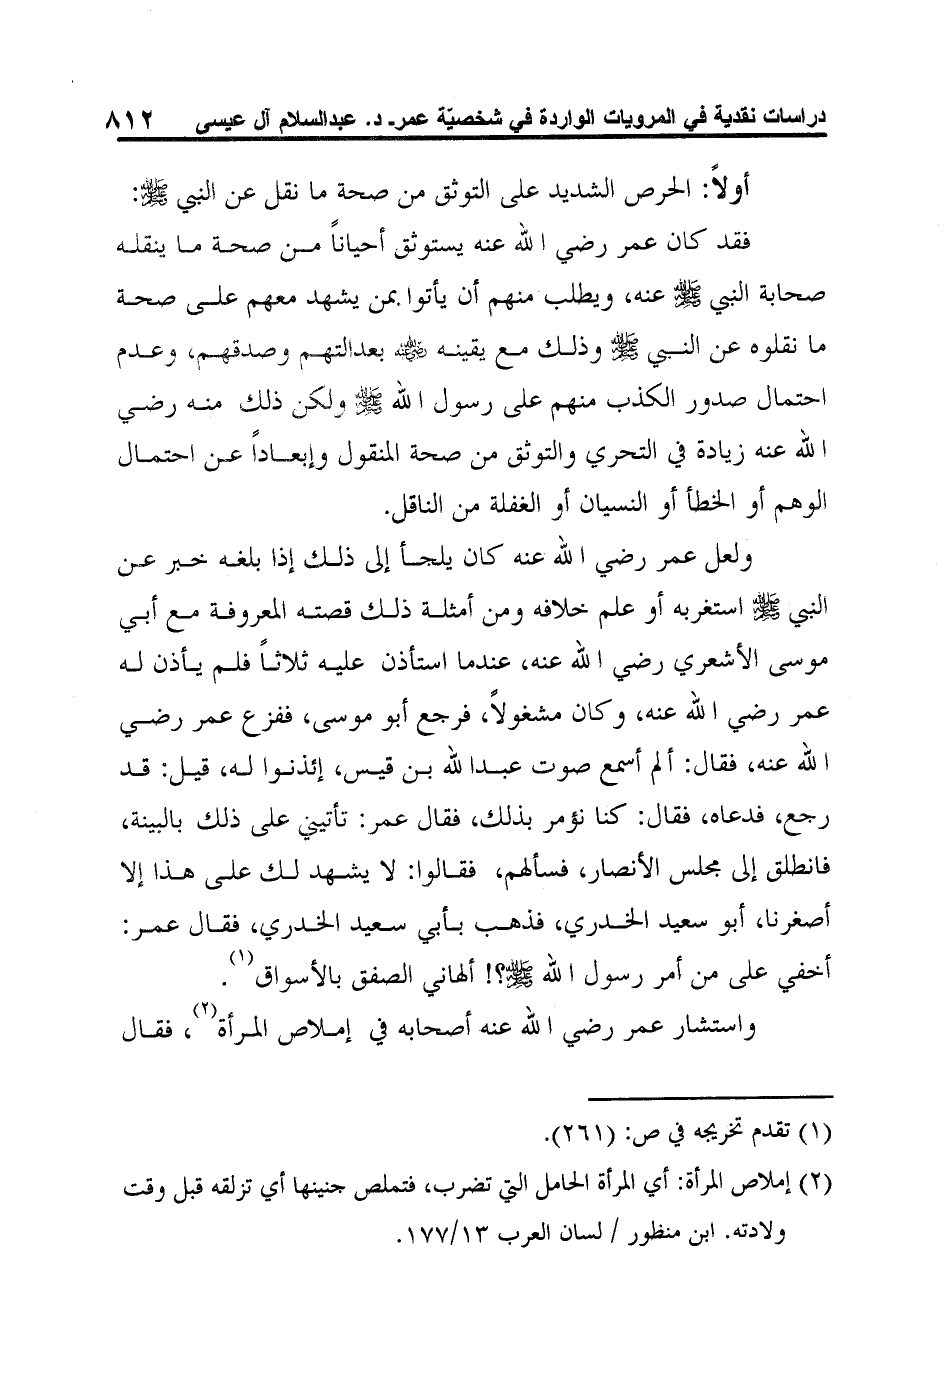 دراسات نقدية في المرويات الواردة في شخصيّة عمر- د. عبدالسلام آل عيسى ٨١٢
أولاً: الحرص الشديد على التوثق من صحة ما نقل عن النبي ﷺ:
فقد كان عمر رضي الله عنه يستوثق أحياناً من صحة ما ينقله
صحابة النبي ﷺ عنه، ويطلب منهم أن يأتوا بمن يشهد معهم على صحة
ما نقلوه عن النبي ﷺ وذلك مع يقينه رضي الله عنه بعدالتهم وصدقهم، وعدم
احتمال صدور الكذب منهم على رسول الله ﷺ ولكن ذلك منه رضي
الله عنه زيادة في التحري والتوثق من صحة المنقول وإبعاداً عن احتمال
الوهم أو الخطأ أو النسيان أو الغفلة من الناقل.
ولعل عمر رضي الله عنه كان يلجأ إلى ذلك إذا بلغه خبر عن
النبي ﷺ استغربه أو علم خلافه ومن أمثلة ذلك قصته المعروفة مع أبي
موسى الأشعري رضي الله عنه، عندما استأذن عليه ثلاثاً فلم يأذن له
عمر رضي الله عنه، وكان مشغولاً، فرجع أبو موسى، ففزع عمر رضي
الله عنه، فقال: ألم أسمع صوت عبدالله بن قيس، إئذنوا له، قيل: قد
رجع، فدعاه، فقال: كنا نؤمر بذلك، فقال عمر: تأتيني على ذلك بالبينة،
فانطلق إلى مجلس الأنصار، فسألهم، فقالوا: لا يشهد لك على هذا إلا
أصغرنا، أبو سعيد الخدري، فذهب بأبي سعيد الخدري، فقال عمر:
أخفي على من أمر رسول الله ﷺ؟! ألهاني الصفق بالأسواق(١).
واستشار عمر رضي الله عنه أصحابه في إملاص المرأة(٢)، فقال
(١) تقدم تخريجه في ص: (٢٦١).
(٢) إملاص المرأة: أي المرأة الحامل التي تضرب، فتملص جنينها أي تزلقه قبل وقت
ولادته. ابن منظور / لسان العرب ١٧٧/١٣.